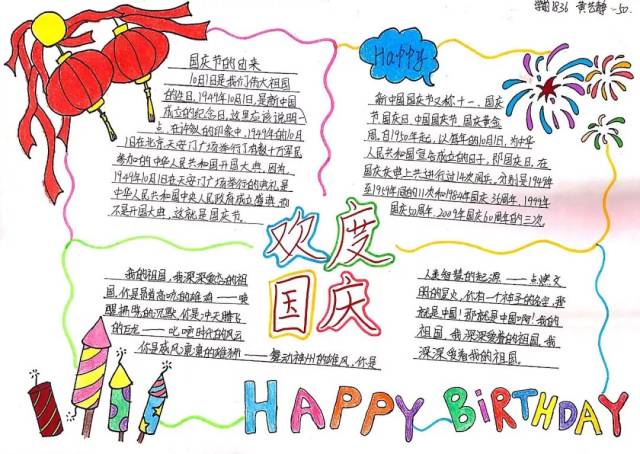 黄艺静
国庆节的由来
10月1日是我们伟大祖国
的生日,1949年10月1日,是新中国
成立的纪念日。这里应该说明一
点,在许多人的印象中,1949年的10月
1日在北京天安门广场举行了有数十万军民
参加的中华人民共和国开国大典,因为,
1949年10月1日在天安门广场举行的典礼是
中华人民共和国中央人民政府成立盛典,而
不是开国大典,这就是国庆节。
Happy
新中国国庆节又称十一、国庆
节、国庆日、中国国庆节、国庆黄金
周。自1950年起,以每年的10月1日,为中华
人民共和国宣告成立的日子,即国庆日。在
国庆庆典上共进行过14次阅兵,分别是1949年
至1959年间的11次和1984年国庆35周年、1999年
国庆50周年、2009年国庆60周年的三次。
欢度
国庆
我的祖国,我深深爱恋的祖
国。你是昂首高吭的雄鸡——唤
醒拂晓的沉默,你是冲天腾飞
的巨龙——叱咤时代的风云
你是威风凛凛的雄狮——舞动神州的雄风,你是
人类智慧的起源——点燃文
明的星火。你有一个神圣的名字,那
就是中国!那就是中国啊!我的
祖国,我深深爱着的祖国。我
深深爱着我的祖国。
HAPPY BiRTHDAY